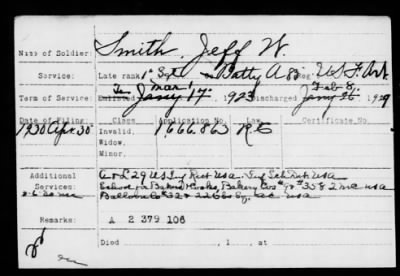 Name of Soldier: Smith, Jeff W.
Service: Late rank 1" Sgt Batty A 83 Reg't U S F. Art
Mar 1 Feb 8,
Term of Service: Enlisted Jany 17, 1923 Discharged Jany 26, 1929
Date of Filing. Class. Application No. Law. Certificate No.
1930 Apr 30 Invalid, 1,666,863 R E
Widow,
Minor,
Additional Services: 29 U.S. Inf Rect USA. Inf Sch Det USA
School for Bakers & Cooks, Bakery Co
Balloon Co 32 & 22 Sq. A.C. USA
Remarks: A 2 379 108
Died , 1 , at